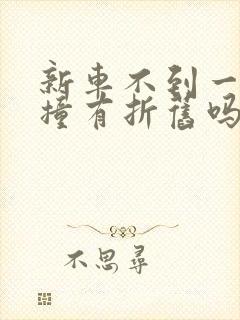 新车不到一
撞有折旧吗
不思寻